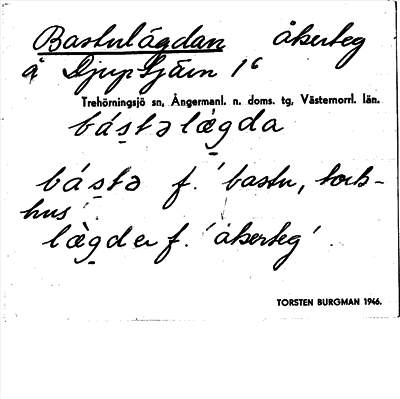 Bastulägdan åkerteg
å Djupsjäin 1⁶
Trehörningsjö sn, Ångermanl. n. doms. tg, Västernorrl. län.
bástəlæ̀gda
bástə f. 'bastu, tork-
hus'.
læ̀gder f. 'åkerteg'.
TORSTEN BURGMAN 1946.